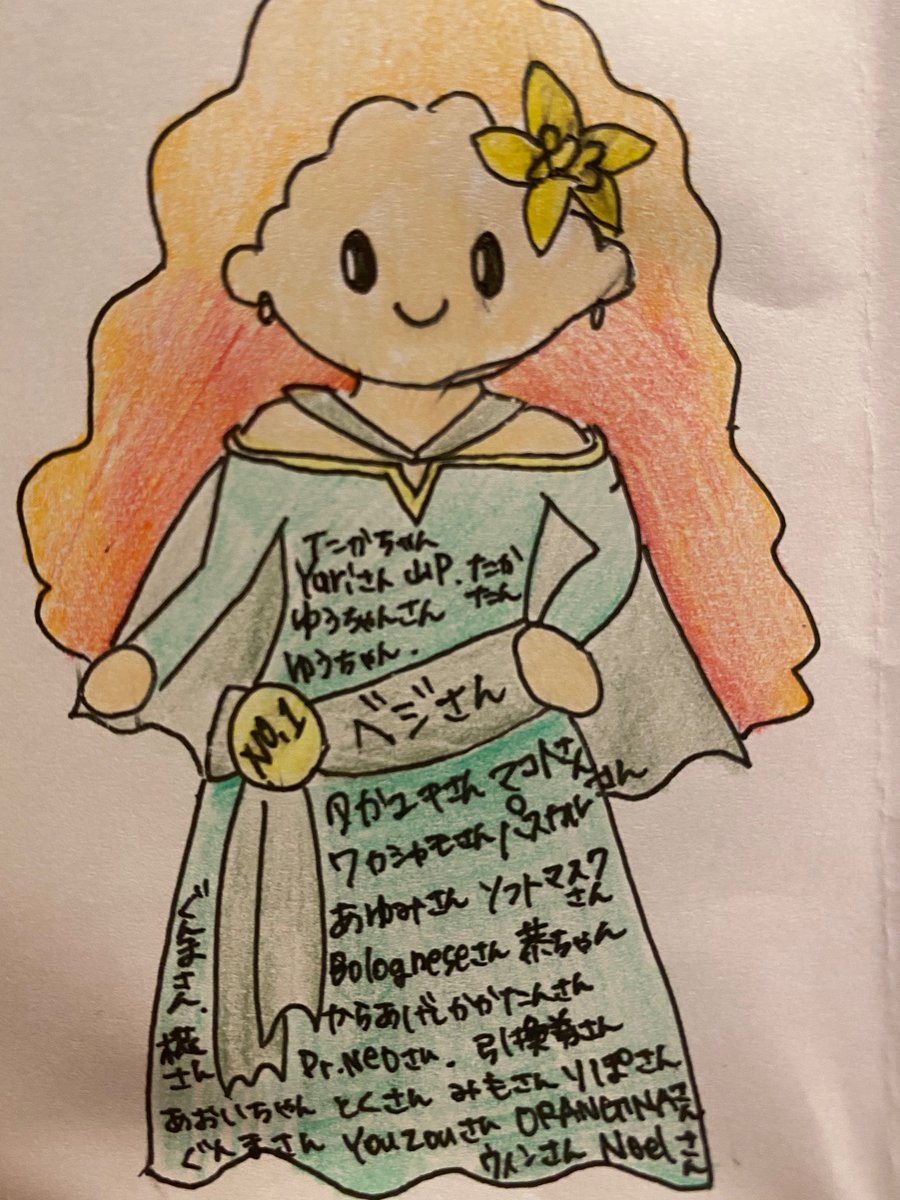 Yariさん 山P. たか
ゆうちゃんさん たん
ゆうちゃん.
ベジさん
NO.1
タカユキさん マコトさん
ワカシャモさん パステルさん
あゆみさん ソフトマスク
さん
Bologneseさん 葉ちゃん
からあげしかかたんさん
Dr.Neoさん. 引換券さん
ぐんまさん.
さん
あおいちゃん とくさん みもさん りぽさん
ぐんまさん Youzouさん ORANGINAさん
ウィンさん Noelさん